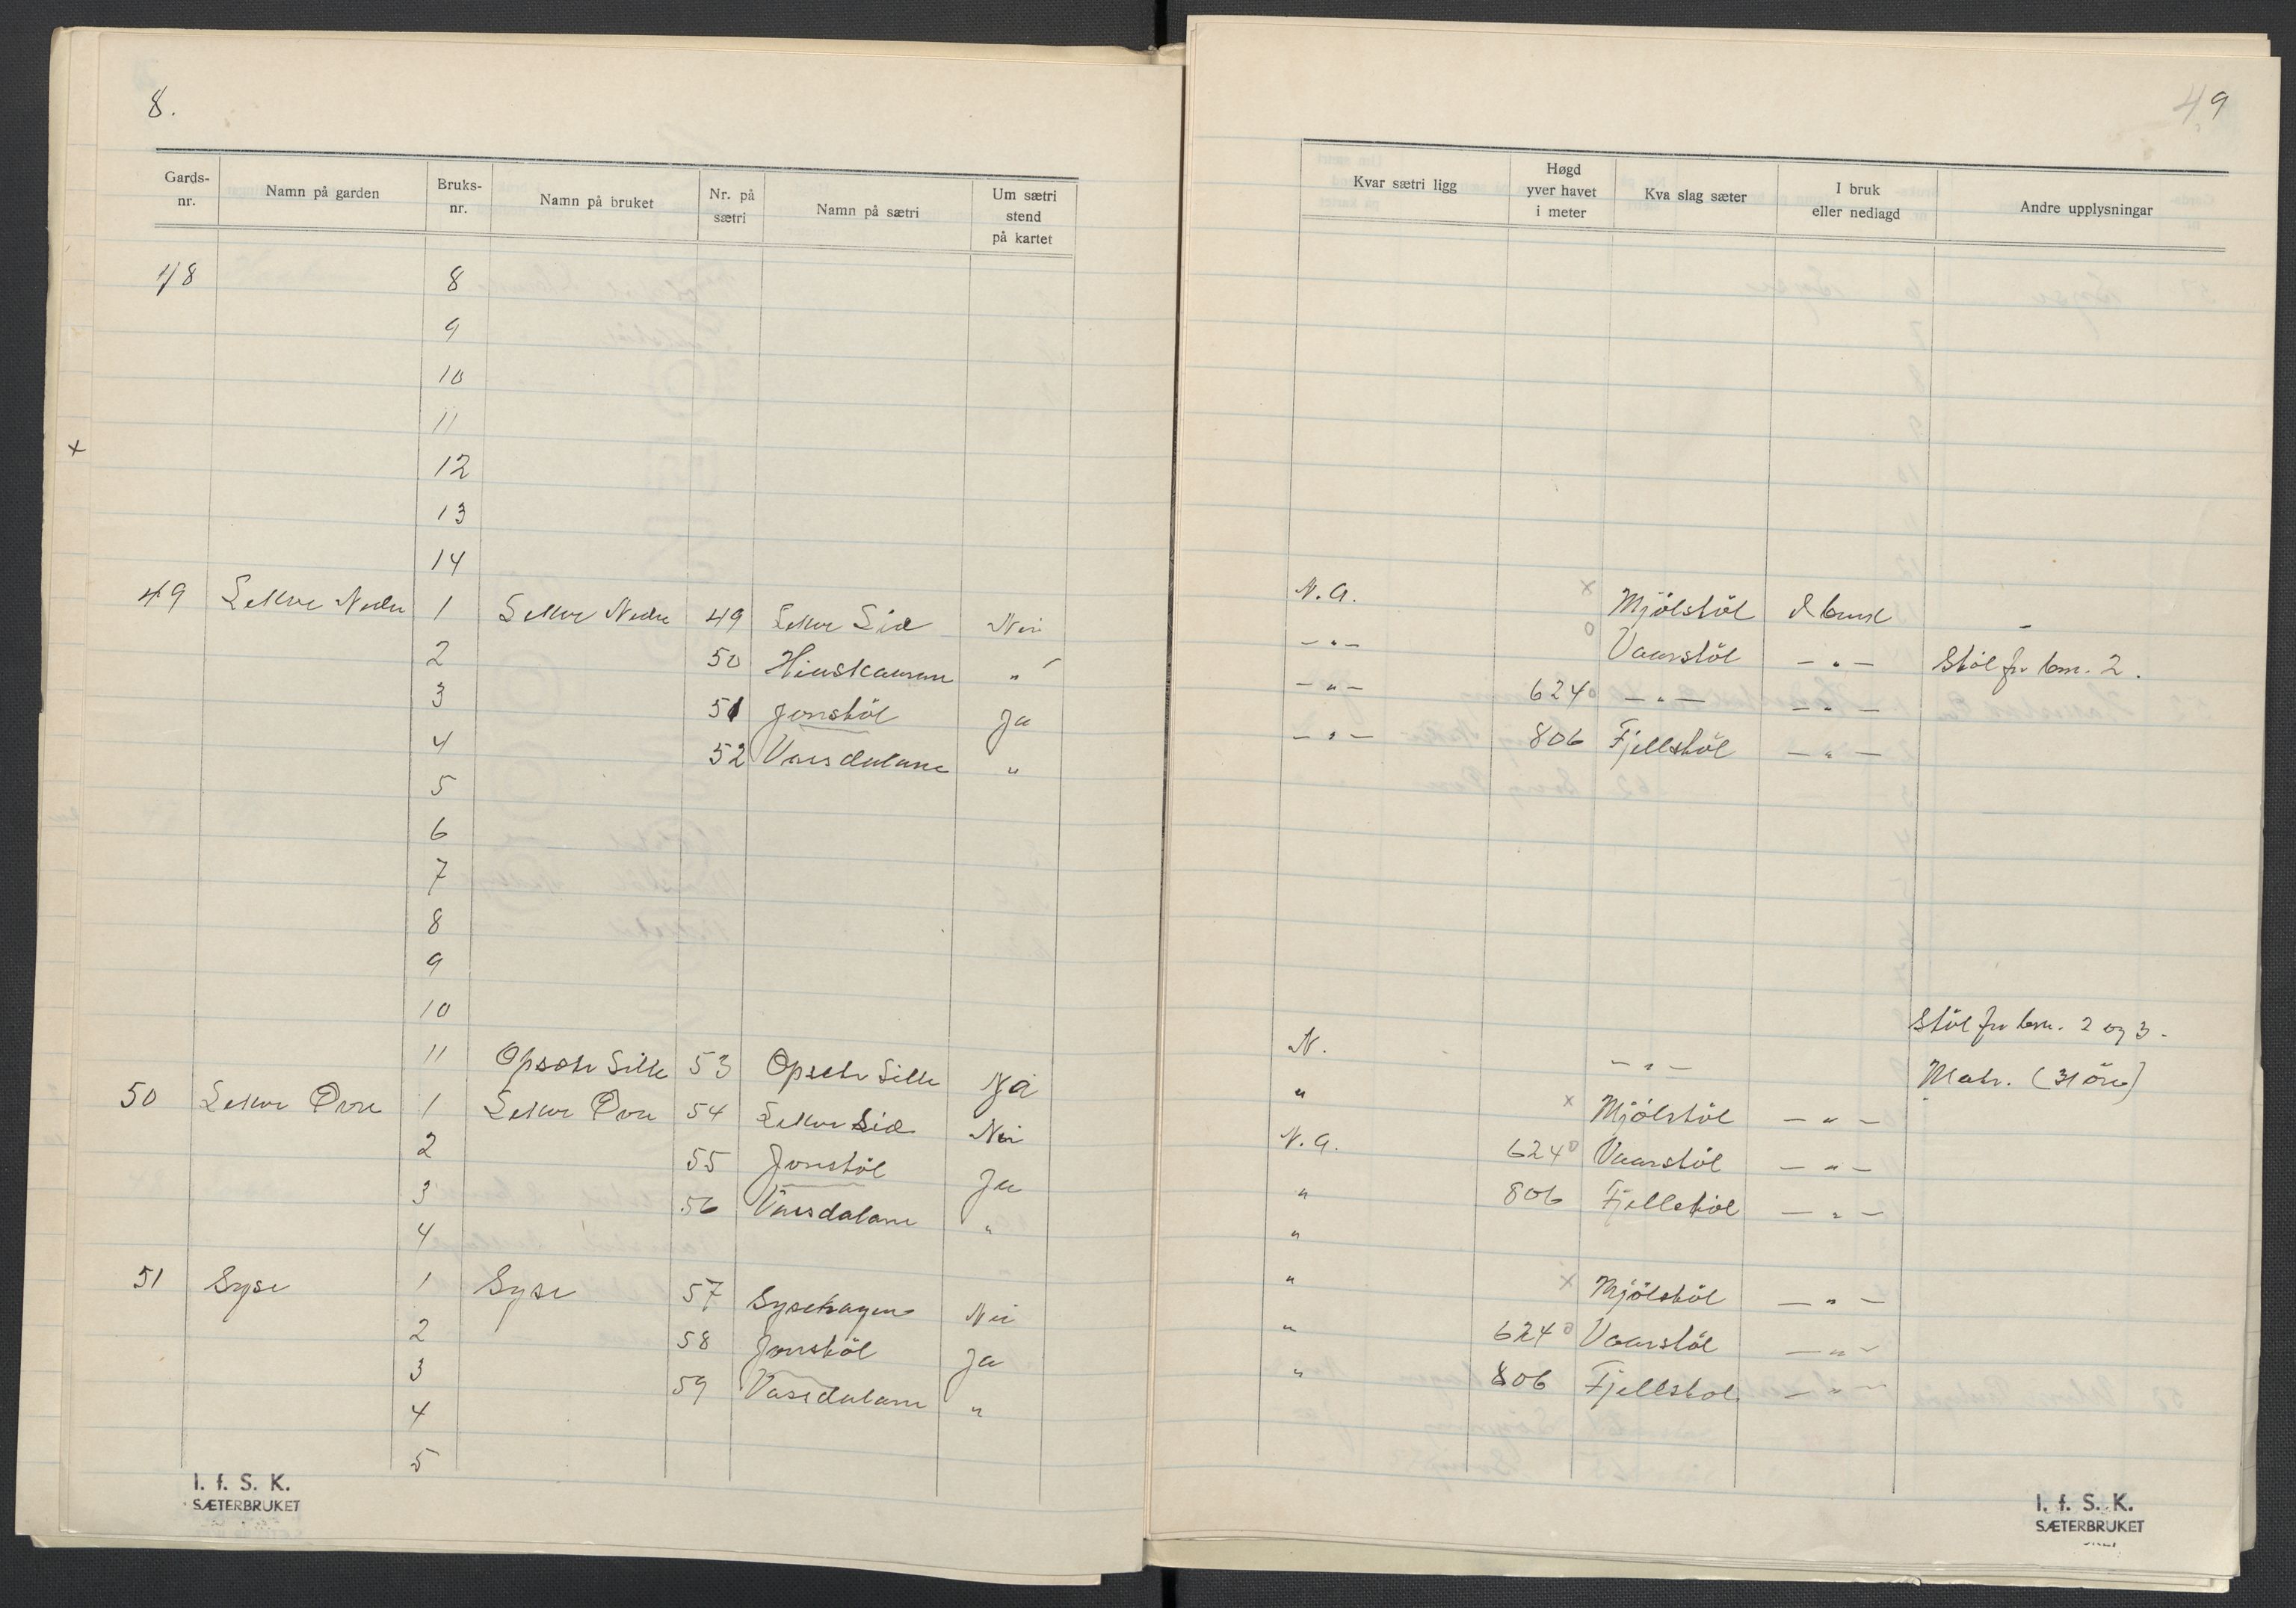 8.
Gards-nr. Namn på garden Bruks-nr. Namn på bruket Nr. på sætri Namn på sætri Um sætri stend på kartet
48 8
9
10
11
12
13
14
49 Lekve Nedre 1 Lekve Nedre 49 Lekve Lid Nei
2 50 "
3 51 Jonstöl Ja
4 52 Vassdalane "
5
6
7
8
9
10
11 Opsete Lille 53 Opsete Lille Nei
50 Lekve Övre 1 Lekve Övre 54 Lekve Lid Nei
2 55 Jonstöl Ja
3 56 Vassdalane "
4
51 Syse 1 Syse 57 Sysehagen Nei
2 58 Jonstöl Ja
3 59 Vassdalane "
4
5
I. f. S. K.
SÆTERBRUKET
x
49
Kvar sætri ligg Høgd yver havet i meter Kva slag sæter I bruk eller nedlagd Andre upplysningar
N. A. x Mjölstöl I bruk –
– " – o Vaarstöl – " – Stöl fr bm. 2.
– " – 624 o – " – – " –
– " – 806 Fjellstöl – " –
Stöl fr bm. 2 og 3.
N. – " – Matr. (31 öre)
" x Mjölstöl – " –
N. A. 624 o Vaarstöl – " –
" 806 Fjellstöl – " –
"
" x Mjölstöl – " –
" 624 o Vaarstöl – " –
" 806 Fjellstol – " –
I. f. S. K.
SÆTERBRUKET